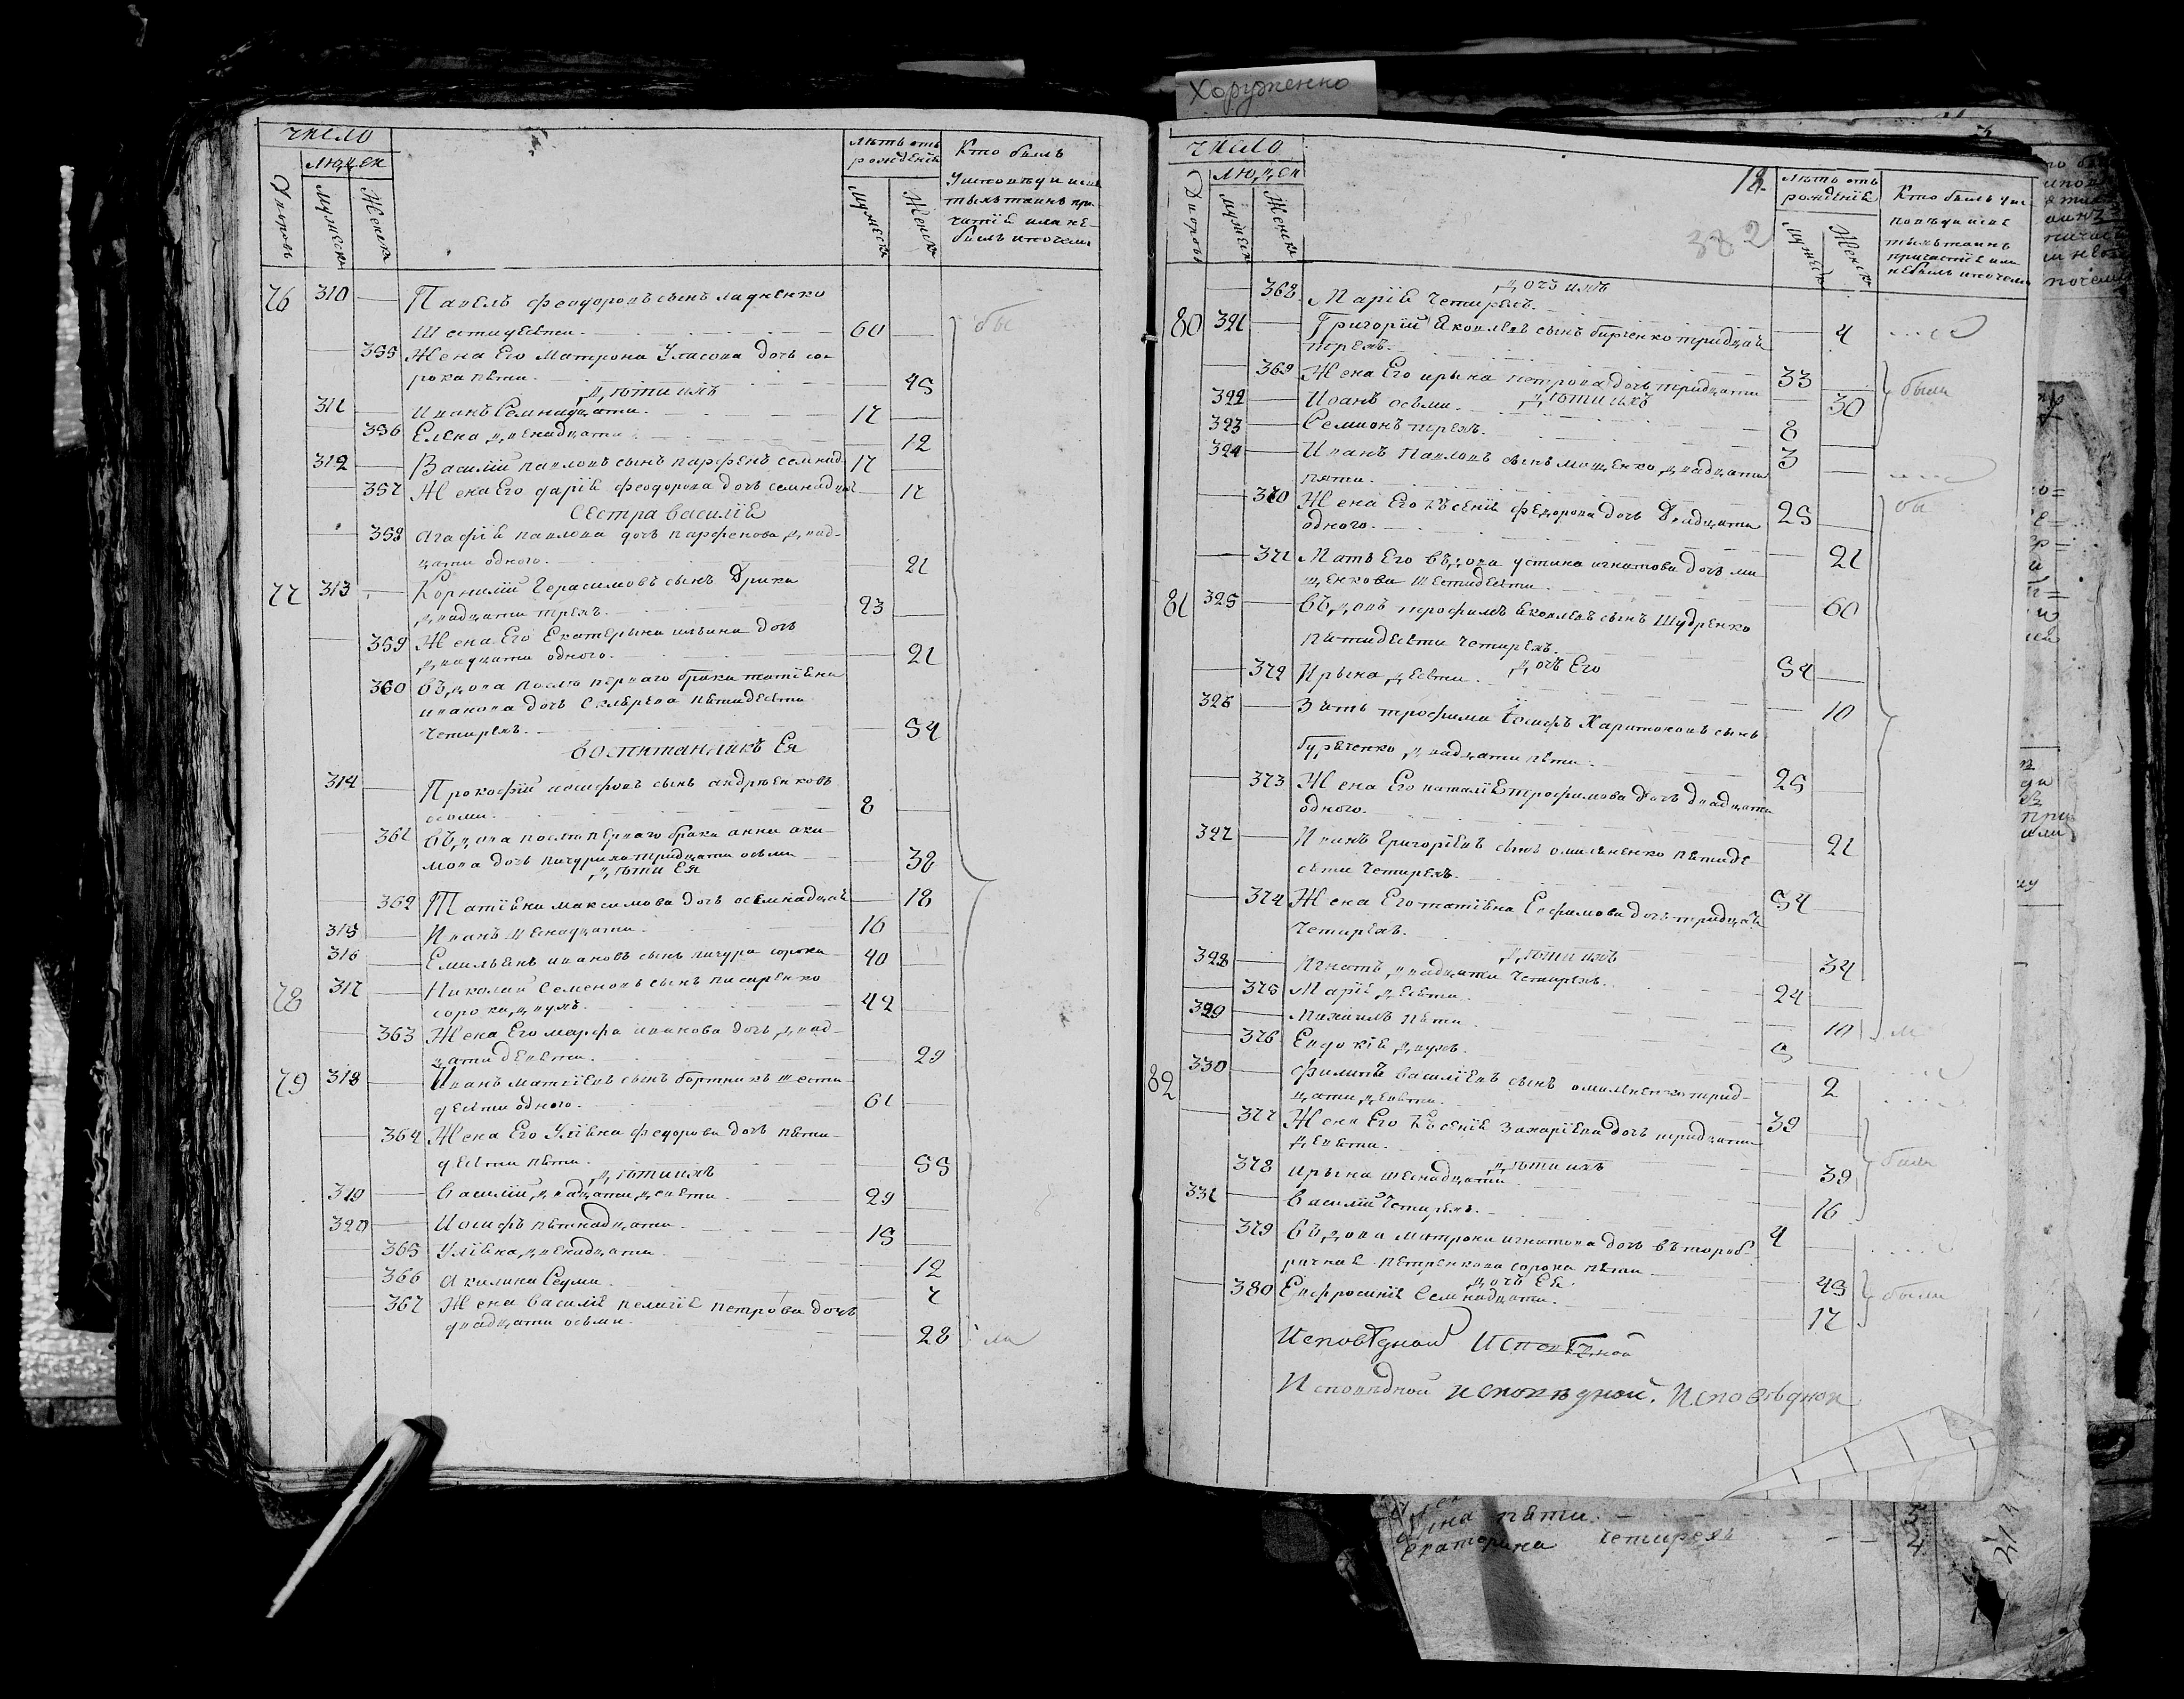 Хоруженко
число
людей
Дворовъ
мужеска
Женска
лѣтъ отъ
рожденія
мужеска
Женска
Кто былъ
у исповѣди и свя
тыхъ таинъ при-
частія или не-
былъ и почему
76 310 Павелъ Феодоровъ сынъ ладненко
шестидесяти. 60
355 Жена Его Матрона Уласова дочь со-
рока пяти. 45
дѣти ихъ
311 Иванъ Семнадцати. 17
356 Елена двенадцати. 12
312 Василій павловъ сынъ парфенъ семнад. 17
357 Жена Его дарія феодорова дочь семнадцат 17
Сестра василія
358 агафія павлова дочь парфенова двад-
цати одного. 21
77 313 Корнилій Герасимовъ сынъ Дрика
двадцати трехъ. 23
359 Жена Его Екатерина ильина дочь
двадцати одного. 21
360 вдова послѣ перваго брака татіяна
иванова дочь Склярева пятидесяти
четирехъ. 54
воспитанникъ Ея
314 Прокофій иосифовъ сынъ андрѣенковъ
осми. 8
361 вдова послѣ перваго брака анна аки-
мова дочь пичурина тридцати осьми 38
дѣти Ея
362 Татіяна максимова дочь осемнадцат 18
315 Иванъ шеснадцати. 16
316 Емильянъ ивановъ сынъ пичура сорока 40
78 317 Николай Семеновъ сынъ писаренко
сорока двухъ. 42
363 Жена Его марфа иванова дочь двад-
цати девяти. 29
79 318 Иванъ матвіевъ сынъ бортникъ шести-
десяти одного. 61
364 Жена Его Уліяна федорова дочь пяти-
десяти пяти. 55
дѣти ихъ
319 василій двадцати девяти. 29
320 Иосифъ пятнадцати. 15
365 Уліяна двенадцати. 12
366 акилина Седми. 7
367 Жена василія пелагія петрова дочь
двадцати осьми. 28
число
людей
Дворовъ
мужеска
Женска
18.
382
лѣтъ отъ
рожденія
мужеска
Женска
Кто былъ у ис-
повѣди и свя
тыхъ таинъ
причастія или
небылъ и почему
дочь ихъ
368 Марія четирехъ. 4
80 321 Григорій Яковлевъ сынъ бирченко тридцать
трехъ. 33
369 Жена Его ирына петрова дочь тридцати 30
были
дѣти ихъ
322 Иванъ осьми. 8
323 Семионъ трехъ. 3
324 Иванъ Павловъ сынъ мощенко двадцати
пяти. 25
370 Жена Его Ксенія федорова дочь двадцати
одного. 21
371 Мать Его вдова устина игнатова дочь мо
щенкова шестидесяти 60
81 325 вдовъ трофимъ яковлевъ сынъ Щудренко
пятидесяти четирехъ. 54
дочь Его
372 Ирына десяти. 10
326 Зять трофима іосифъ Харитоновъ сынъ
бурятенко двадцати пяти. 25
373 Жена Его наталія трофимова дочь двадцати
одного. 21
327 Иванъ григоріевъ сынъ омиляненко пятиде
сяти четирехъ. 54
374 Жена Его татіяна Ефимова дочь тридцать
четирехъ. 34
дѣти ихъ
328 Игнатъ двадцати четирехъ. 24
375 Марія десяти. 10
329 Михаилъ пяти. 5
376 Евдокія двухъ. 2
82 330 филипъ василіевъ сынъ омиляненко трид-
цати девяти. 39
377 Жена Его Ксенія захаріева дочь тридцати
девяти. 39
были
дѣти ихъ
378 ирына шеснадцати. 16
331 василій четирехъ. 4
379 вдова матрона игнатова дочь второб-
рачная петренкова сорока пяти 45
дочь Ея.
380 Евфросинія Семнадцати. 17
были
Исповѣдной Исповѣдной
Исповѣдной исповѣдной. Исповѣдной
пяти. 3
Екатерина четирехъ 4